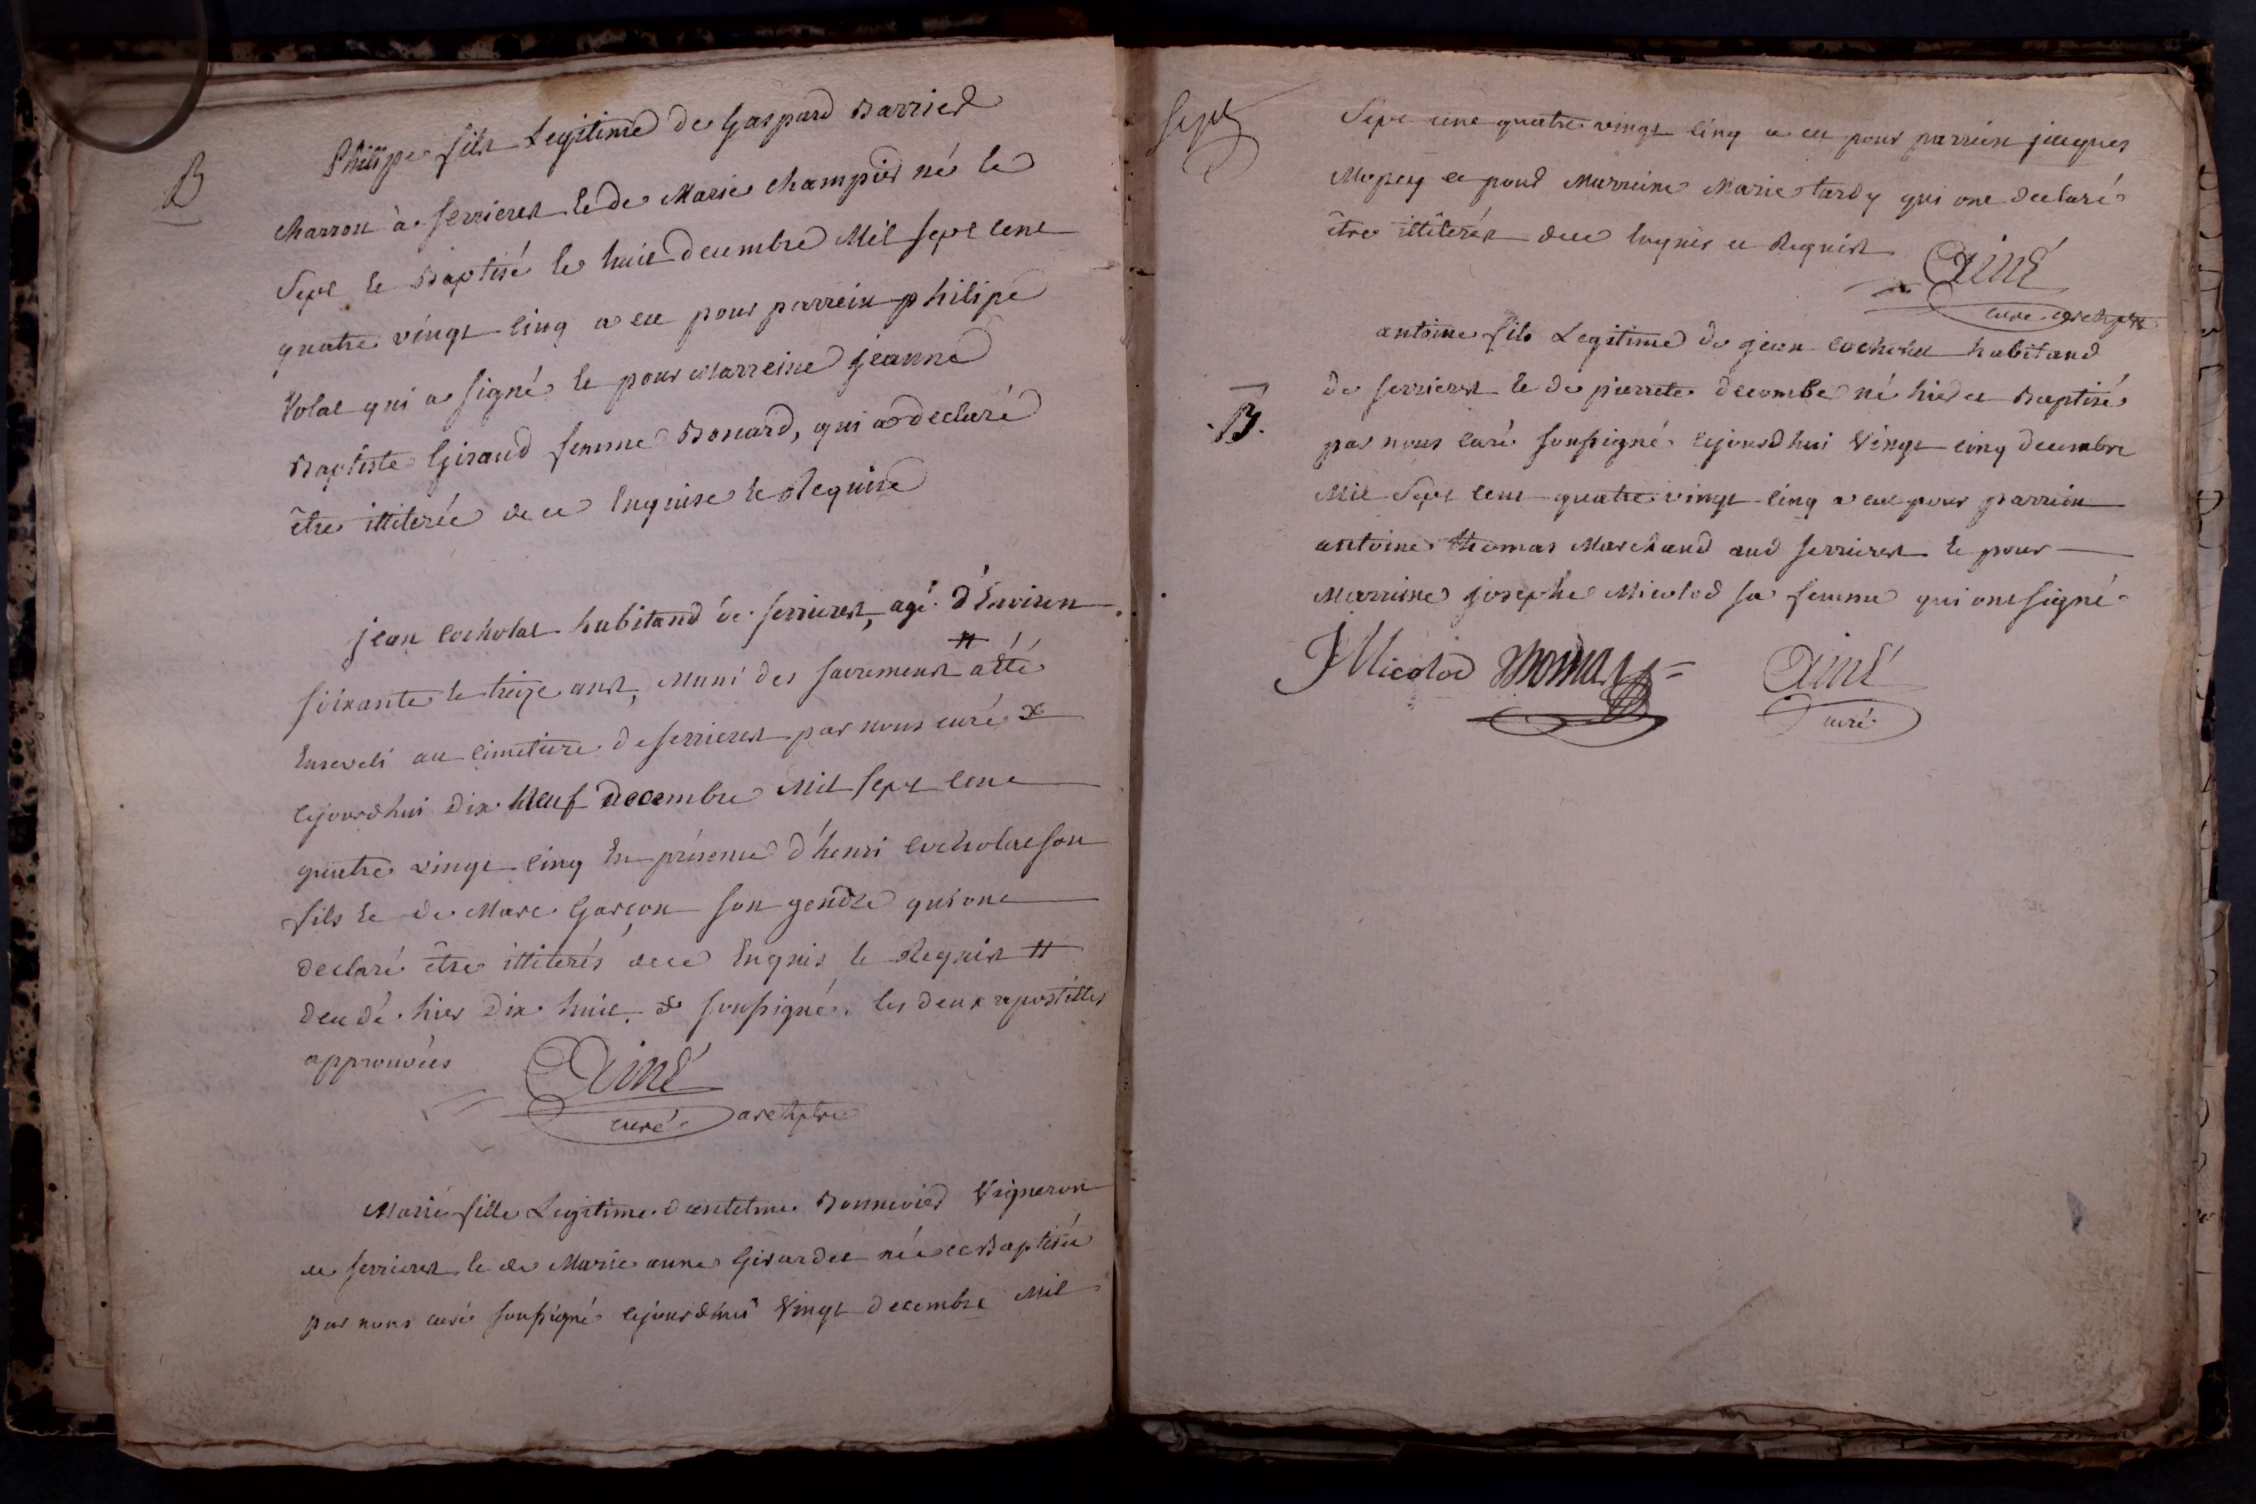 B
Philipe fils Legitime de Gaspard Barrier
charron à Serrieres et de Marie champier né le
Sept et Baptisé le huit decembre Mil sept cent
quatre vingt cinq a eu pour parrein philipe
Volat qui a signé et pour Marreine jeanne
Baptiste Giraud femme Bonard, qui a declaré
être illiterée de ce Enquise et Requise
jean cocholat habitand de serrieres, agé d'Environ
soixante et treize ans, Muni des sacremens # a été
Enseveli au cimetiere de serrieres par nous curé x
cejourdhui dix Neuf decembre Mil sept cent
quatre vingt cinq En présence d'henri cocholat son
fils et de Marc Garçon son gendre qui ont
declaré être illiterés de ce Enquis et Requis #
decedé hier dix huit. x soussigné. les deux apostilles
approuvées
Ainé
curé archiptre
Marie fille Legitime d'antelme Bonnevier Vigneron
de serrieres et de Marie anne Girardet née et Baptisée
par nous curé soussigné cejourdhui Vingt decembre Mil
Sept
Sept cent quatre vingt cinq a eu pour parrein jacques
et pour Marreine Marie tardy qui ont declaré
être illiterés de ce Enquis et Requis
Ainé
curé archiptre
antoine fils Legitime de jean habitand
B.
de serrieres et de pierrete decombe né hier et Baptisé
par nous curé soussigné cejourdhui Vingt cinq decembre
Mil Sept cent quatre vingt cinq a eu pour parrein
antoine thomas Marchand aud serrieres et pour
Marreine josephe Micolod sa femme qui ont signé
J Micolod thomas Ainé
curé